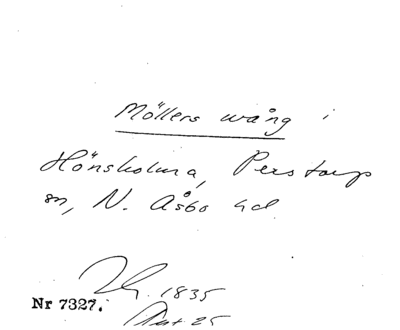 Möllers wång i
Hönsholma, Perstorp
sn, N. Åsbo hd.
1835
Nr 7327.
25